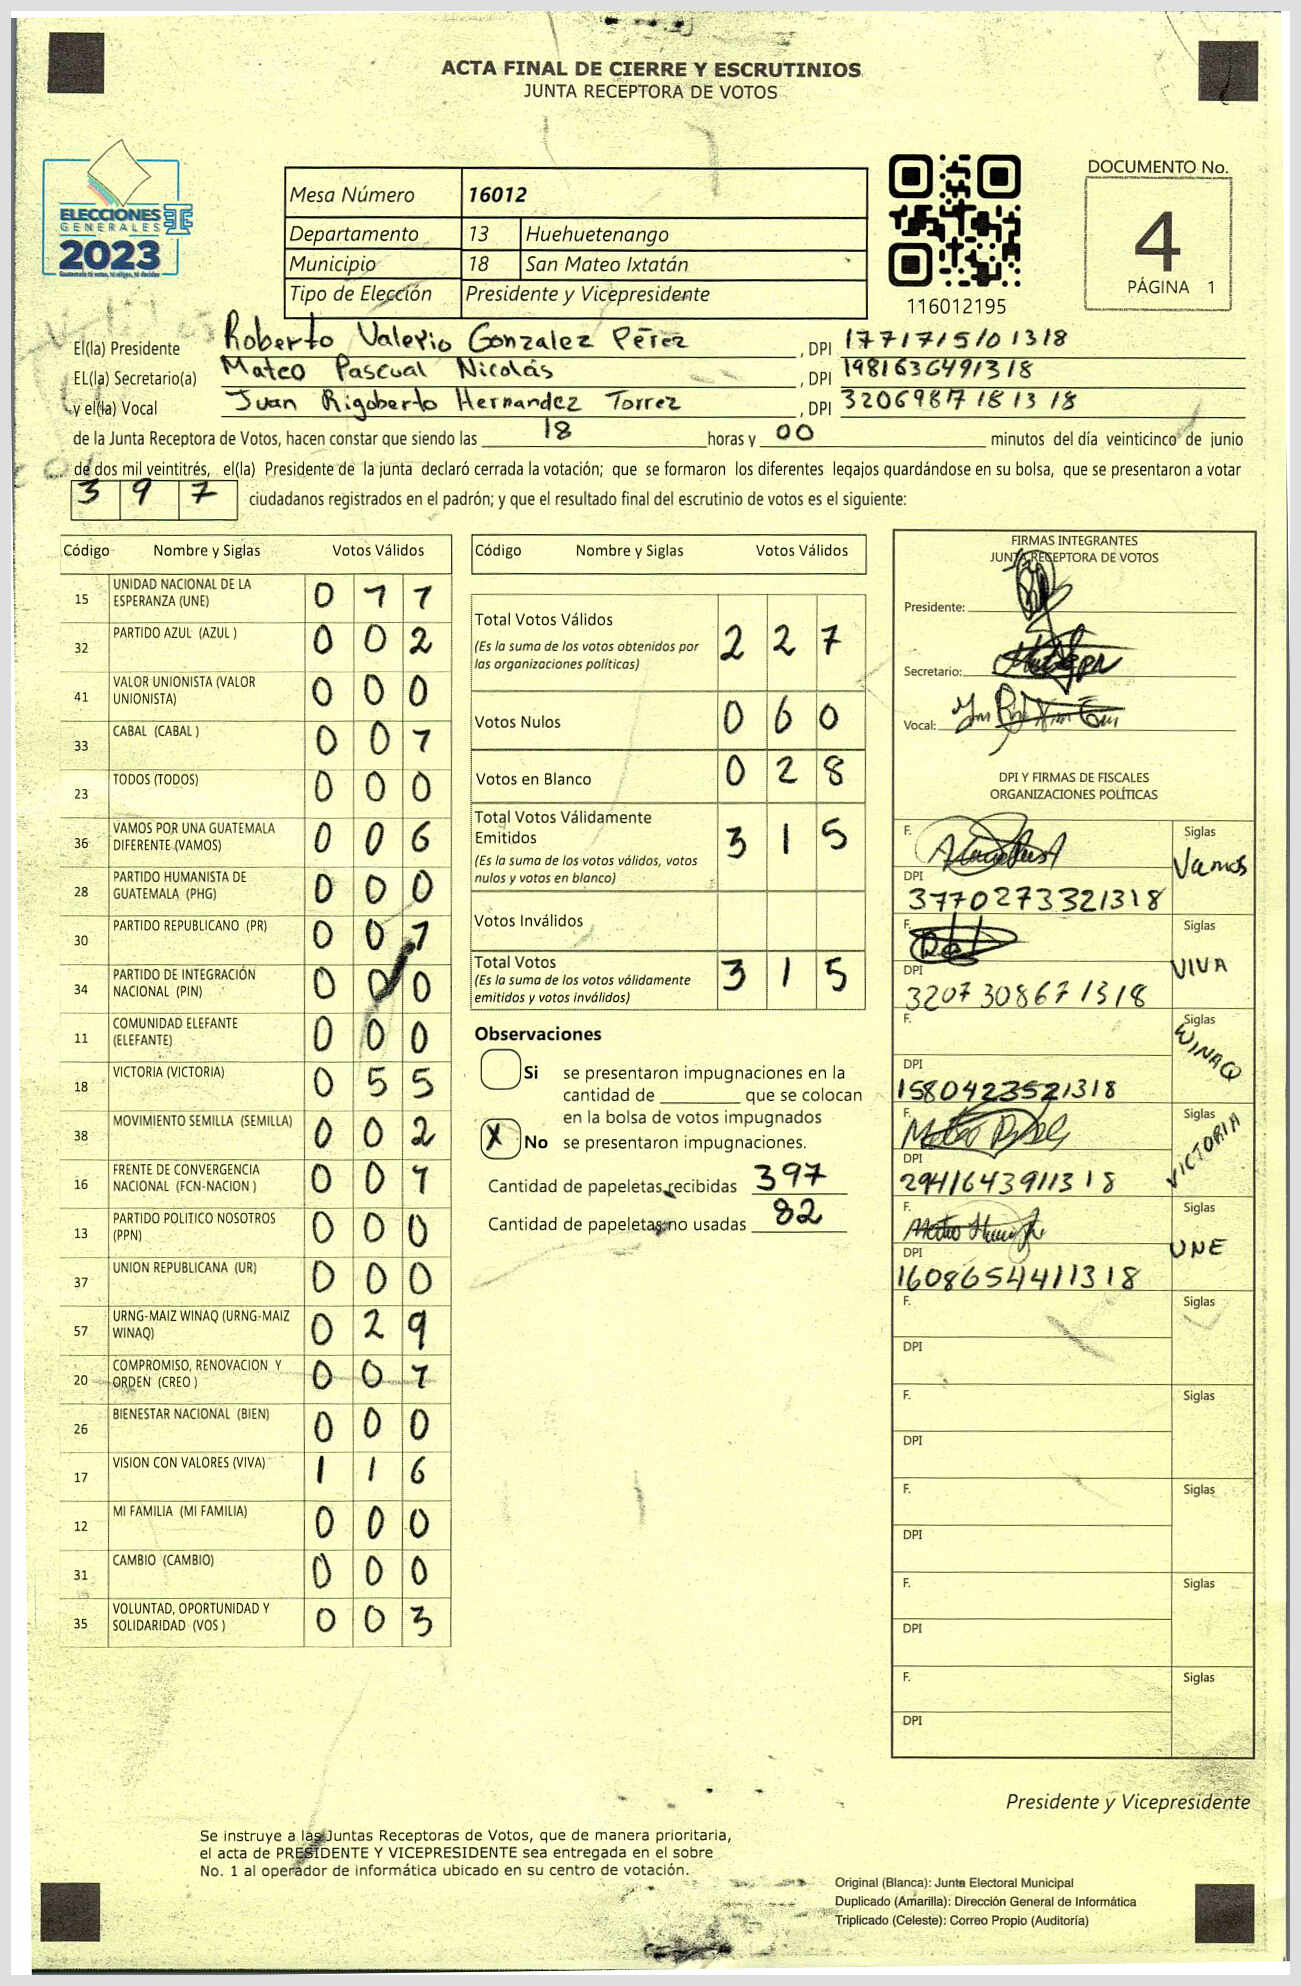 ACTA FINAL DE CIERRE Y ESCRUTINIOS
JUNTA RECEPTORA DE VOTOS
ELECCIONES
GENERALES
2023
Mesa Número 16012
Departamento 13 Huehuetenango
Municipio 18 San Mateo Ixtatán
Tipo de Elección Presidente y Vicepresidente
116012195
DOCUMENTO No.
4
PÁGINA 1
El(la) Presidente Roberto Valerio Gonzalez Pérez , DPI 1771715101318
EL(la) Secretario(a) Mateo Pascual Nicolás , DPI 1981636491318
y el(la) Vocal Juan Rigoberto Hernandez Torrez , DPI 3206987181318
de la Junta Receptora de Votos, hacen constar que siendo las 18 horas y 00 minutos del día veinticinco de junio
de dos mil veintitrés, el(la) Presidente de la junta declaró cerrada la votación; que se formaron los diferentes legajos quardándose en su bolsa, que se presentaron a votar
3 9 7 ciudadanos registrados en el padrón; y que el resultado final del escrutinio de votos es el siguiente:
Código Nombre y Siglas Votos Válidos
15 UNIDAD NACIONAL DE LA ESPERANZA (UNE) 0 1 1
32 PARTIDO AZUL (AZUL ) 0 0 2
41 VALOR UNIONISTA (VALOR UNIONISTA) 0 0 0
33 CABAL (CABAL ) 0 0 1
23 TODOS (TODOS) 0 0 0
36 VAMOS POR UNA GUATEMALA DIFERENTE (VAMOS) 0 0 6
28 PARTIDO HUMANISTA DE GUATEMALA (PHG) 0 0 0
30 PARTIDO REPUBLICANO (PR) 0 0 1
34 PARTIDO DE INTEGRACIÓN NACIONAL (PIN) 0 0 0
11 COMUNIDAD ELEFANTE (ELEFANTE) 0 0 0
18 VICTORIA (VICTORIA) 0 5 5
38 MOVIMIENTO SEMILLA (SEMILLA) 0 0 2
16 FRENTE DE CONVERGENCIA NACIONAL (FCN-NACION ) 0 0 1
13 PARTIDO POLITICO NOSOTROS (PPN) 0 0 0
37 UNION REPUBLICANA (UR) 0 0 0
57 URNG-MAIZ WINAQ (URNG-MAIZ WINAQ) 0 2 9
20 COMPROMISO, RENOVACION Y ORDEN (CREO ) 0 0 1
26 BIENESTAR NACIONAL (BIEN) 0 0 0
17 VISION CON VALORES (VIVA) 1 1 6
12 MI FAMILIA (MI FAMILIA) 0 0 0
31 CAMBIO (CAMBIO) 0 0 0
35 VOLUNTAD, OPORTUNIDAD Y SOLIDARIDAD (VOS ) 0 0 3
Código Nombre y Siglas Votos Válidos
Total Votos Válidos 2 2 7
(Es la suma de los votos obtenidos por
las organizaciones políticas)
Votos Nulos 0 6 0
Votos en Blanco 0 2 8
Total Votos Válidamente
Emitidos 3 1 5
(Es la suma de los votos válidos, votos
nulos y votos en blanco)
Votos Inválidos
Total Votos 3 1 5
(Es la suma de los votos válidamente
emitidos y votos inválidos)
Observaciones
Si se presentaron impugnaciones en la
cantidad de ________ que se colocan
en la bolsa de votos impugnados
X No se presentaron impugnaciones.
Cantidad de papeletas recibidas 397
Cantidad de papeletas no usadas 82
FIRMAS INTEGRANTES
JUNTA RECEPTORA DE VOTOS
Presidente:
Secretario:
Vocal:
DPI Y FIRMAS DE FISCALES
ORGANIZACIONES POLÍTICAS
F. Siglas
Vamos
DPI
3770273321318
F. Siglas
VIVA
DPI
3207308671318
F. Siglas
WINAQ
DPI
1580423521318
F. Siglas
VICTORIA
DPI
2941643911318
F. Siglas
UNE
DPI
1608654411318
F. Siglas
DPI
F. Siglas
DPI
F. Siglas
DPI
F. Siglas
DPI
F. Siglas
DPI
Presidente y Vicepresidente
Se instruye a las Juntas Receptoras de Votos, que de manera prioritaria,
el acta de PRESIDENTE Y VICEPRESIDENTE sea entregada en el sobre
No. 1 al operador de informática ubicado en su centro de votación.
Original (Blanca): Junta Electoral Municipal
Duplicado (Amarilla): Dirección General de Informática
Triplicado (Celeste): Correo Propio (Auditoría)